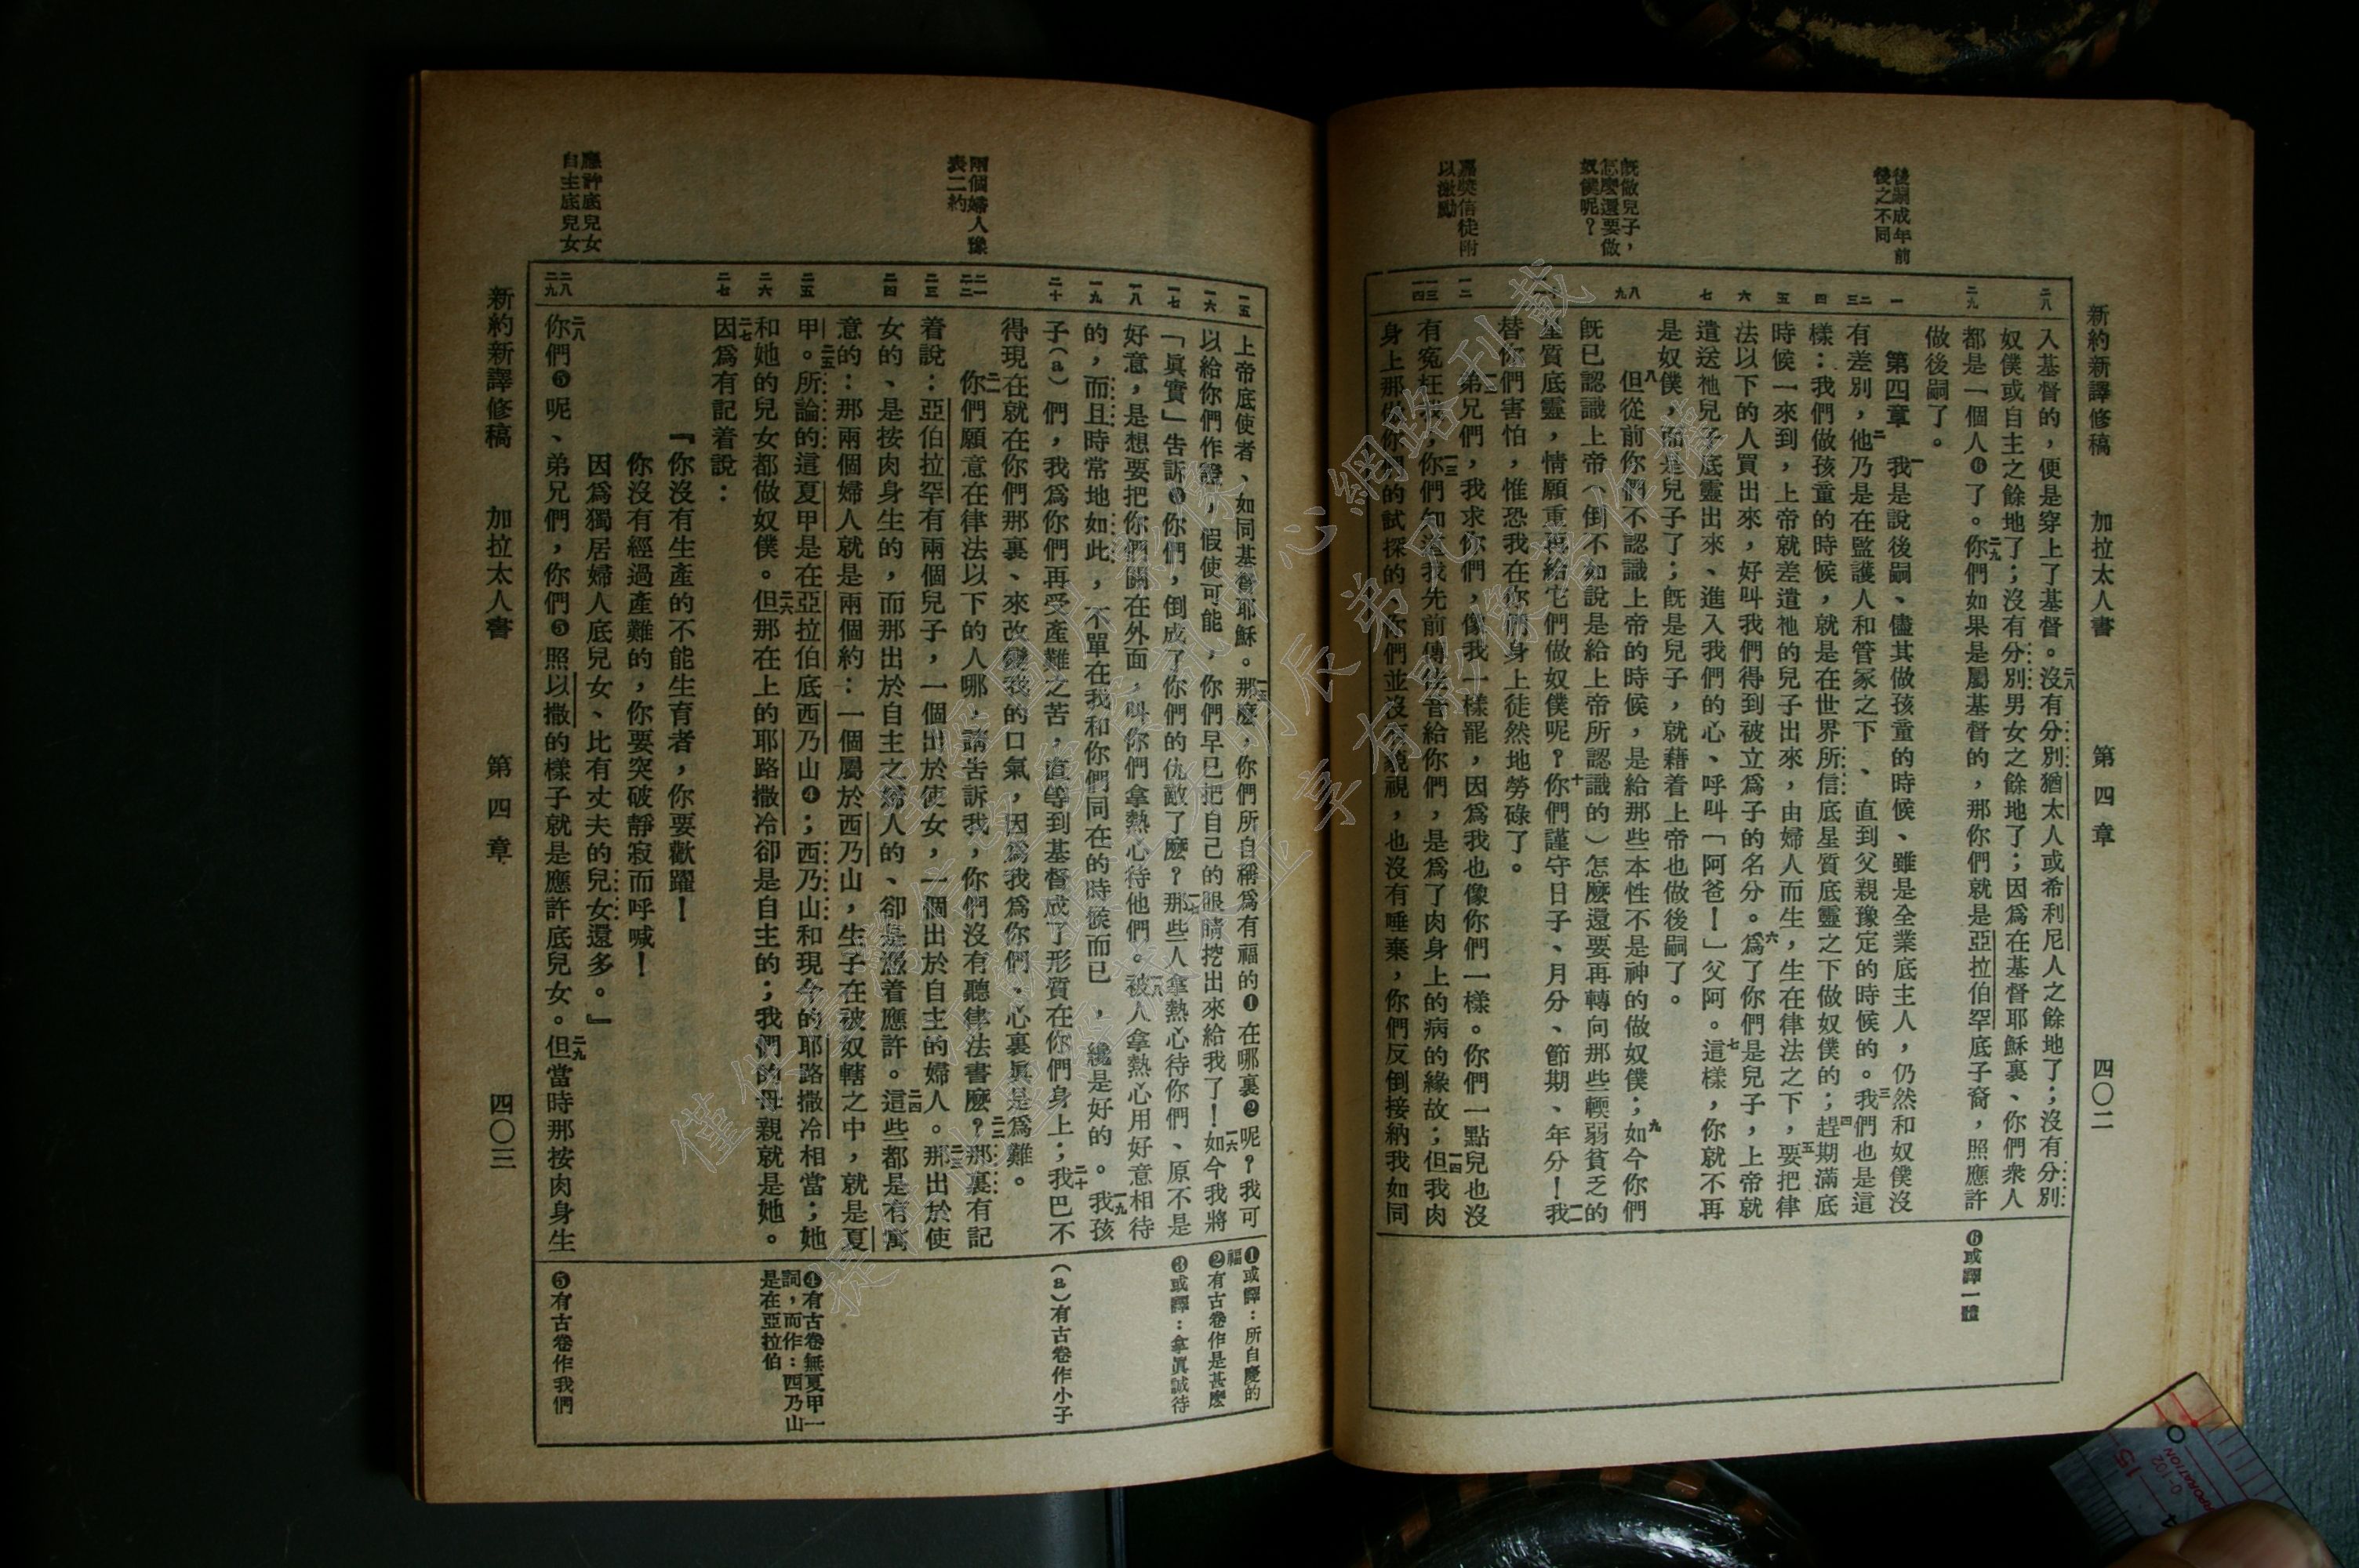 新約新譯修稿　加拉太人書　第四章　四〇二
後嗣成年前
後之不同
既做兒子，
怎麼還要做
奴僕呢？
嘉獎信徒附
以激勵
二八
二九
一
二
三
四
五
六
七
八
九
一二
一三
一四
入基督的，便是穿上了基督。二八沒有分別猶太人或希利尼人之餘地了；沒有分別
奴僕或自主之餘地了；沒有分別男女之餘地了；因為在基督耶穌裏、你們衆人
都是一個人❻了。二九你們如果是屬基督的，那你們就是亞拉伯罕底子裔，照應許
做後嗣了。
第四章　一我是說後嗣、儘其做孩童的時候、雖是全業底主人，仍然和奴僕沒
有差別，二他乃是在監護人和管家之下、直到父親豫定的時候的。三我們也是這
樣：我們做孩童的時候，就是在世界所信底星質底靈之下做奴僕的；四趕期滿底
時候一來到，上帝就差遣祂的兒子出來，由婦人而生，生在律法之下，五要把律
法以下的人買出來，好叫我們得到被立爲子的名分。六爲了你們是兒子，上帝就
遣送祂兒子底靈出來、進入我們的心、呼叫「阿爸！」父阿。七這樣，你就不再
是奴僕，而是兒子了；既是兒子，就藉着上帝也做後嗣了。
八但從前你們不認識上帝的時候，是給那些本性不是神的做奴僕；九如今你們
既已認識上帝（倒不如說是給上帝所認識的）怎麼還要再轉向那些輭弱貧乏的
星質底靈，情願重再給它們做奴僕呢？十你們謹守日子、月分、節期、年分！一一我
替你們害怕，惟恐我在你們身上徒然地勞碌了。
一二弟兄們，我求你們，像我一樣罷，因爲我也像你們一樣。你們一點兒也沒
有寃枉我，一三你們知道我先前傳佳音給你們，是爲了肉身上的病的緣故；一四但我肉
身上那與你們的試探的、你們並沒有藐視，也沒有唾棄，你們反倒接納我如同
❻或譯一體
兩個婦人豫
表二約
應許底兒女
自主底兒女
一五
一六
一七
一八
一九
二十
二一
二二
二三
二四
二五
二六
二七
二八
二九
上帝底使者、如同基督耶穌。一五那麼，你們所自稱爲有福的❶在哪裏❷呢？我可
以給你們作證，假使可能，你們早已把自己的眼睛挖出來給我了！一六如今我將
「眞實」告訴❸你們，倒成了你們的仇敵了麼？一七那些人拿熱心待你們、原不是
好意，是想要把你們關在外面，叫你們拿熱心待他們。一八被人拿熱心用好意相待
的，而且時常地如此，不單在我和你們同在的時候而已，纔是好的。一九我孩
子（a）們，我爲你們再受產難之苦，直等到基督成了形質在你們身上；二十我巴不
得現在就在你們那裏、來改變我的口氣，因爲我爲你們、心裏眞是爲難。
二一你們願意在律法以下的人哪，請告訴我，你們沒有聽律法書麼？二二那裏有記
着說：亞伯拉罕有兩個兒子，一個出於使女，一個出於自主的婦人。二三那出於使
女的、是按肉身生的，而那出於自主之婦人的、卻是憑着應許。二四這些都是有寓
意的：那兩個婦人就是兩個約：一個屬於西乃山，生子在被奴轄之中，就是夏
甲。二五所論的這夏甲是在亞拉伯底西乃山❹；西乃山和現今的耶路撒冷相當；她
和她的兒女都做奴僕。二六但那在上的耶路撒冷卻是自主的；我們的母親就是她。
二七因爲有記着說：
『你沒有生產的不能生育者，你要歡躍！
你沒有經過產難的，你要突破靜寂而呼喊！
因爲獨居婦人底兒女、比有丈夫的兒女還多。』
二八你們❺呢、弟兄們，你們❺照以撒的樣子就是應許底兒女。二九但當時那按肉身生
❶或譯：所自慶的
福
❷有古卷作是甚麼
❸或譯：拿眞誠待
（a）有古卷作小子
❹有古卷無夏甲一
詞，而作：西乃山
是在亞拉伯
❺有古卷作我們
新約新譯修稿　加拉太人書　第四章　四〇三